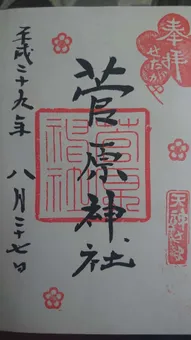 奉拝
せたがや
菅原神社
菅原
神社
平成二十九年
八月二十七日